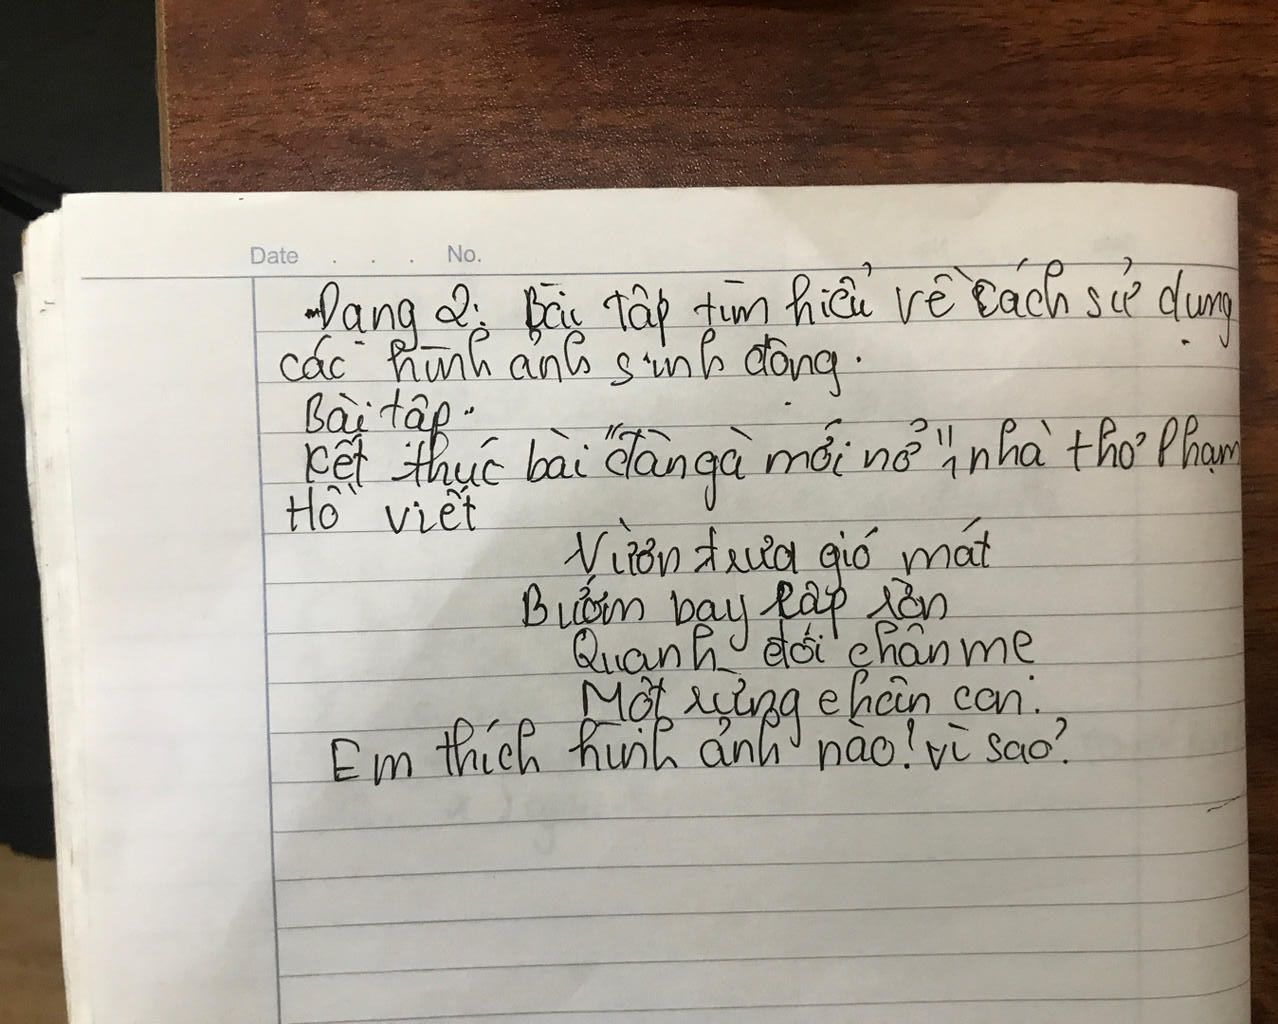 Date . . . No.
Dạng 2: Bài tập tìm hiểu về cách sử dụng
các hình ảnh sinh động.
Bài tập.
Kết thúc bài "đàn gà mới nở", nhà thơ Phạm
Hồ viết
Vườn trưa gió mát
Bướm bay lập rờn
Quanh đôi chân mẹ
Một rừng chân con.
Em thích hình ảnh nào! vì sao?